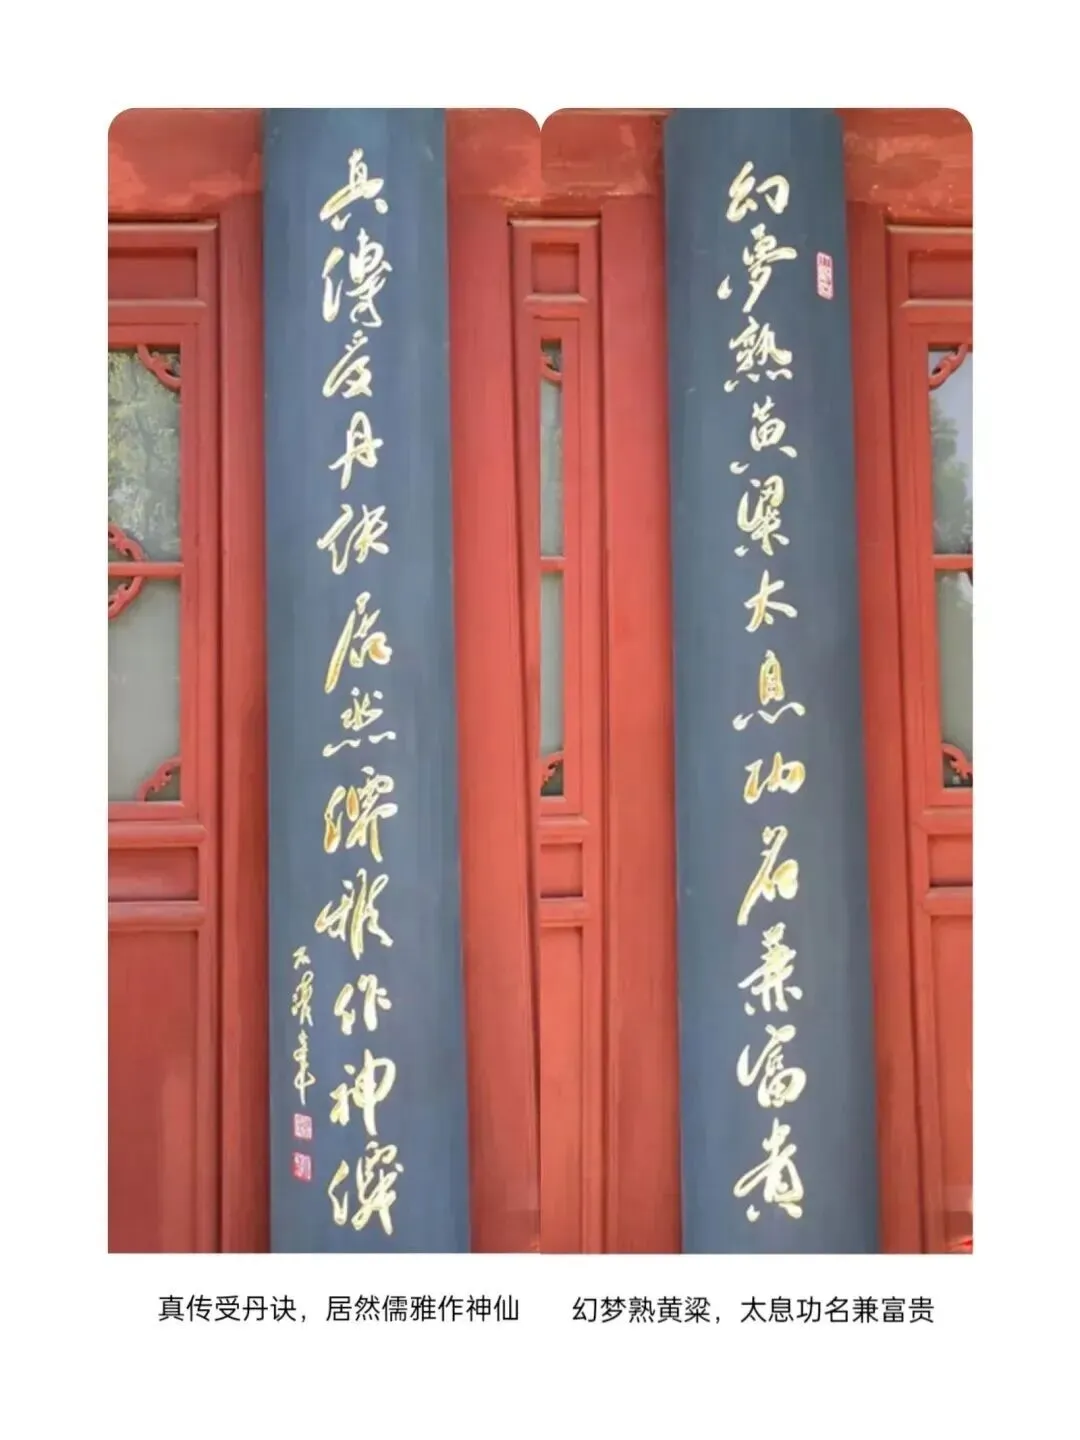 幻夢熟黄粱太息功名兼富貴
真傳受丹訣居然儒雅作神僊
真传受丹诀，居然儒雅作神仙
幻梦熟黄粱，太息功名兼富贵